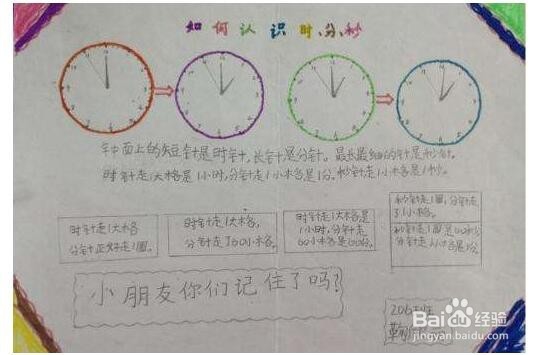 如何认识时、分、秒
钟面上的短针是时针，长针是分针。最长最细的针是秒针。
时针走1大格是1小时，分针走1小格是1分。秒针走1小格是1秒。
时针走1大格
分针正好走1圈。
时针走1大格，
分针走了60小格。
时针走1大格是
1小时，分针走
60小格是60分。
秒针走1圈，分针走
了1小格。
秒针走1圈是60秒
分针走1小格是1分。
小朋友你们记住了吗？
Baidu经验
jingyan.baidu.com